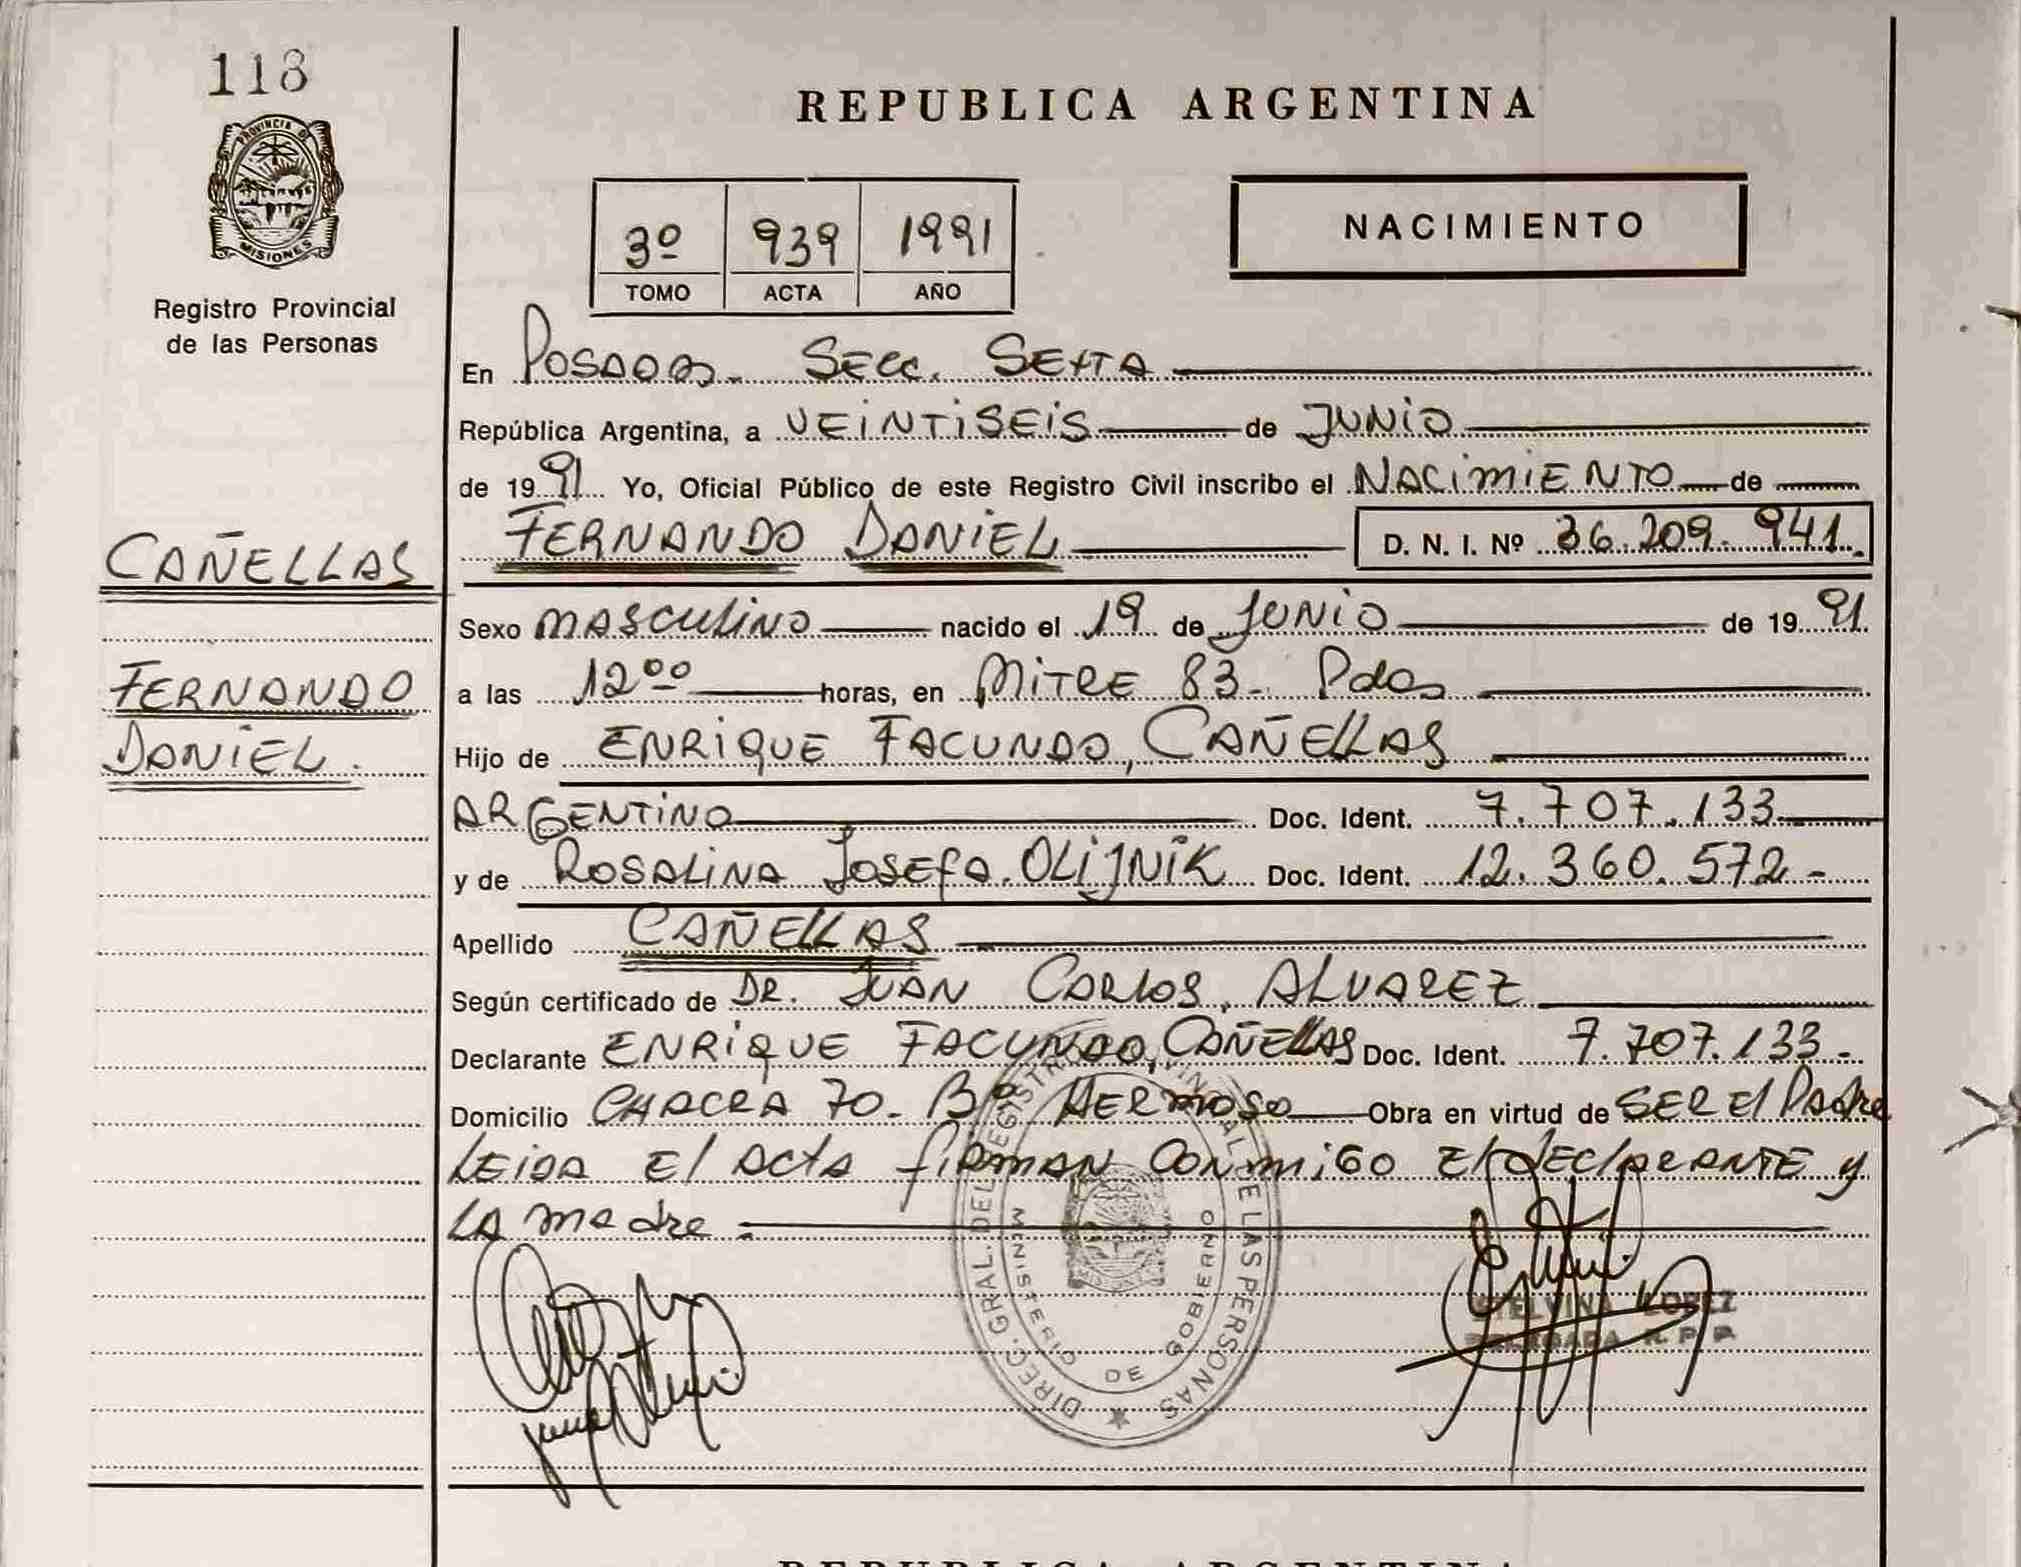 118
PROVINCIA DE
MISIONES
Registro Provincial
de las Personas
CAÑELLAS
FERNANDO
DANIEL.
REPUBLICA ARGENTINA
3º 939 1991
TOMO ACTA AÑO
NACIMIENTO
En Posadas - Secc. Sexta
República Argentina, a VEINTISEIS de JUNIO
de 1991 Yo, Oficial Público de este Registro Civil inscribo el NACIMIENTO de
FERNANDO DANIEL D. N. I. Nº 36.209.941.
Sexo MASCULINO nacido el 19 de JUNIO de 1991
a las 12⁰⁰ horas, en MITRE 83- Pdas
Hijo de ENRIQUE FACUNDO, CAÑELLAS
ARGENTINO Doc. Ident. 7.707.133
y de ROSALINA JOSEFA. OLIJNIK Doc. Ident. 12.360.572-
Apellido CAÑELLAS
Según certificado de DR. JUAN CARLOS, ALVAREZ
Declarante ENRIQUE FACUNDO, CAÑELLAS Doc. Ident. 7.707.133-
Domicilio CHACRA 70- Bº HERMOSO Obra en virtud de SER El Padre
LEIDA El ActA firmAN CONmiGO El dEClARANTE y
LA madre.
DIREC. GRAL. DEL REGISTRO PROVINCIAL DE LAS PERSONAS
MINISTERIO DE GOBIERNO
ETELVINA LOPEZ
DELEGADA R. P. P.
REPUBLICA ARGENTINA